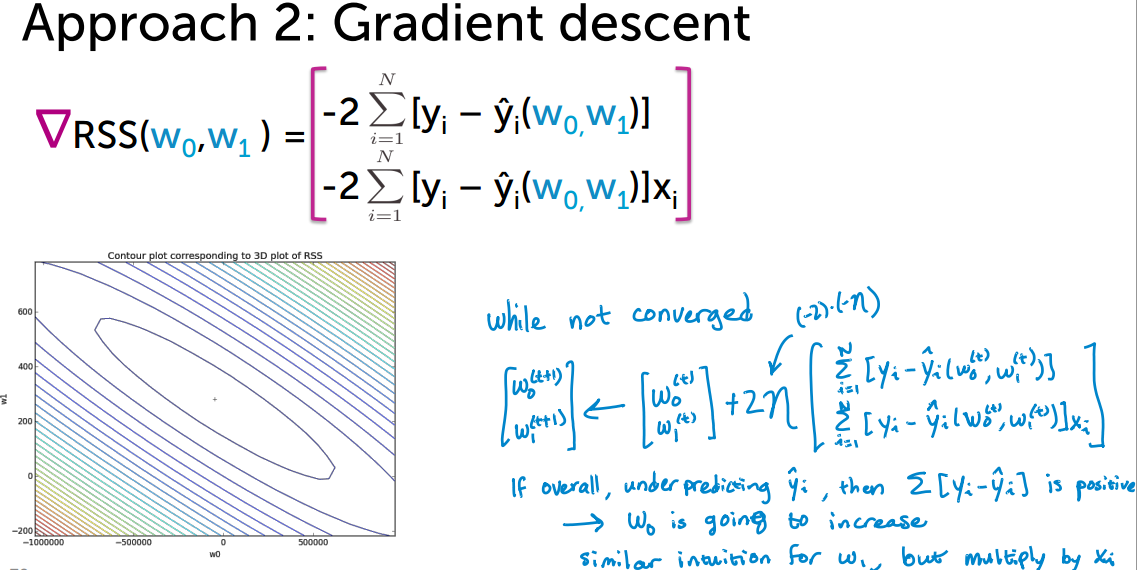 Approach 2: Gradient descent
∇RSS(w₀,w₁) = [ -2 Σᵢ₌₁ᴺ [yᵢ – ŷᵢ(w₀,w₁)]
-2 Σᵢ₌₁ᴺ [yᵢ – ŷᵢ(w₀,w₁)]xᵢ ]
Contour plot corresponding to 3D plot of RSS
600
400
200
0
−200
w1
−1000000 −500000 0 500000
w0
while not converged (-2)·(-η)
[ w₀⁽ᵗ⁺¹⁾ ← [ w₀⁽ᵗ⁾ +2η [ Σᵢ₌₁ᴺ [yᵢ - ŷᵢ(w₀⁽ᵗ⁾, w₁⁽ᵗ⁾)]
w₁⁽ᵗ⁺¹⁾ ] w₁⁽ᵗ⁾ ] Σᵢ₌₁ᴺ [yᵢ - ŷᵢ(w₀⁽ᵗ⁾, w₁⁽ᵗ⁾)]xᵢ ]
If overall, under predicting ŷᵢ, then Σ[yᵢ-ŷᵢ] is positive
→ w₀ is going to increase
similar intuition for w₁, but multiply by xᵢ